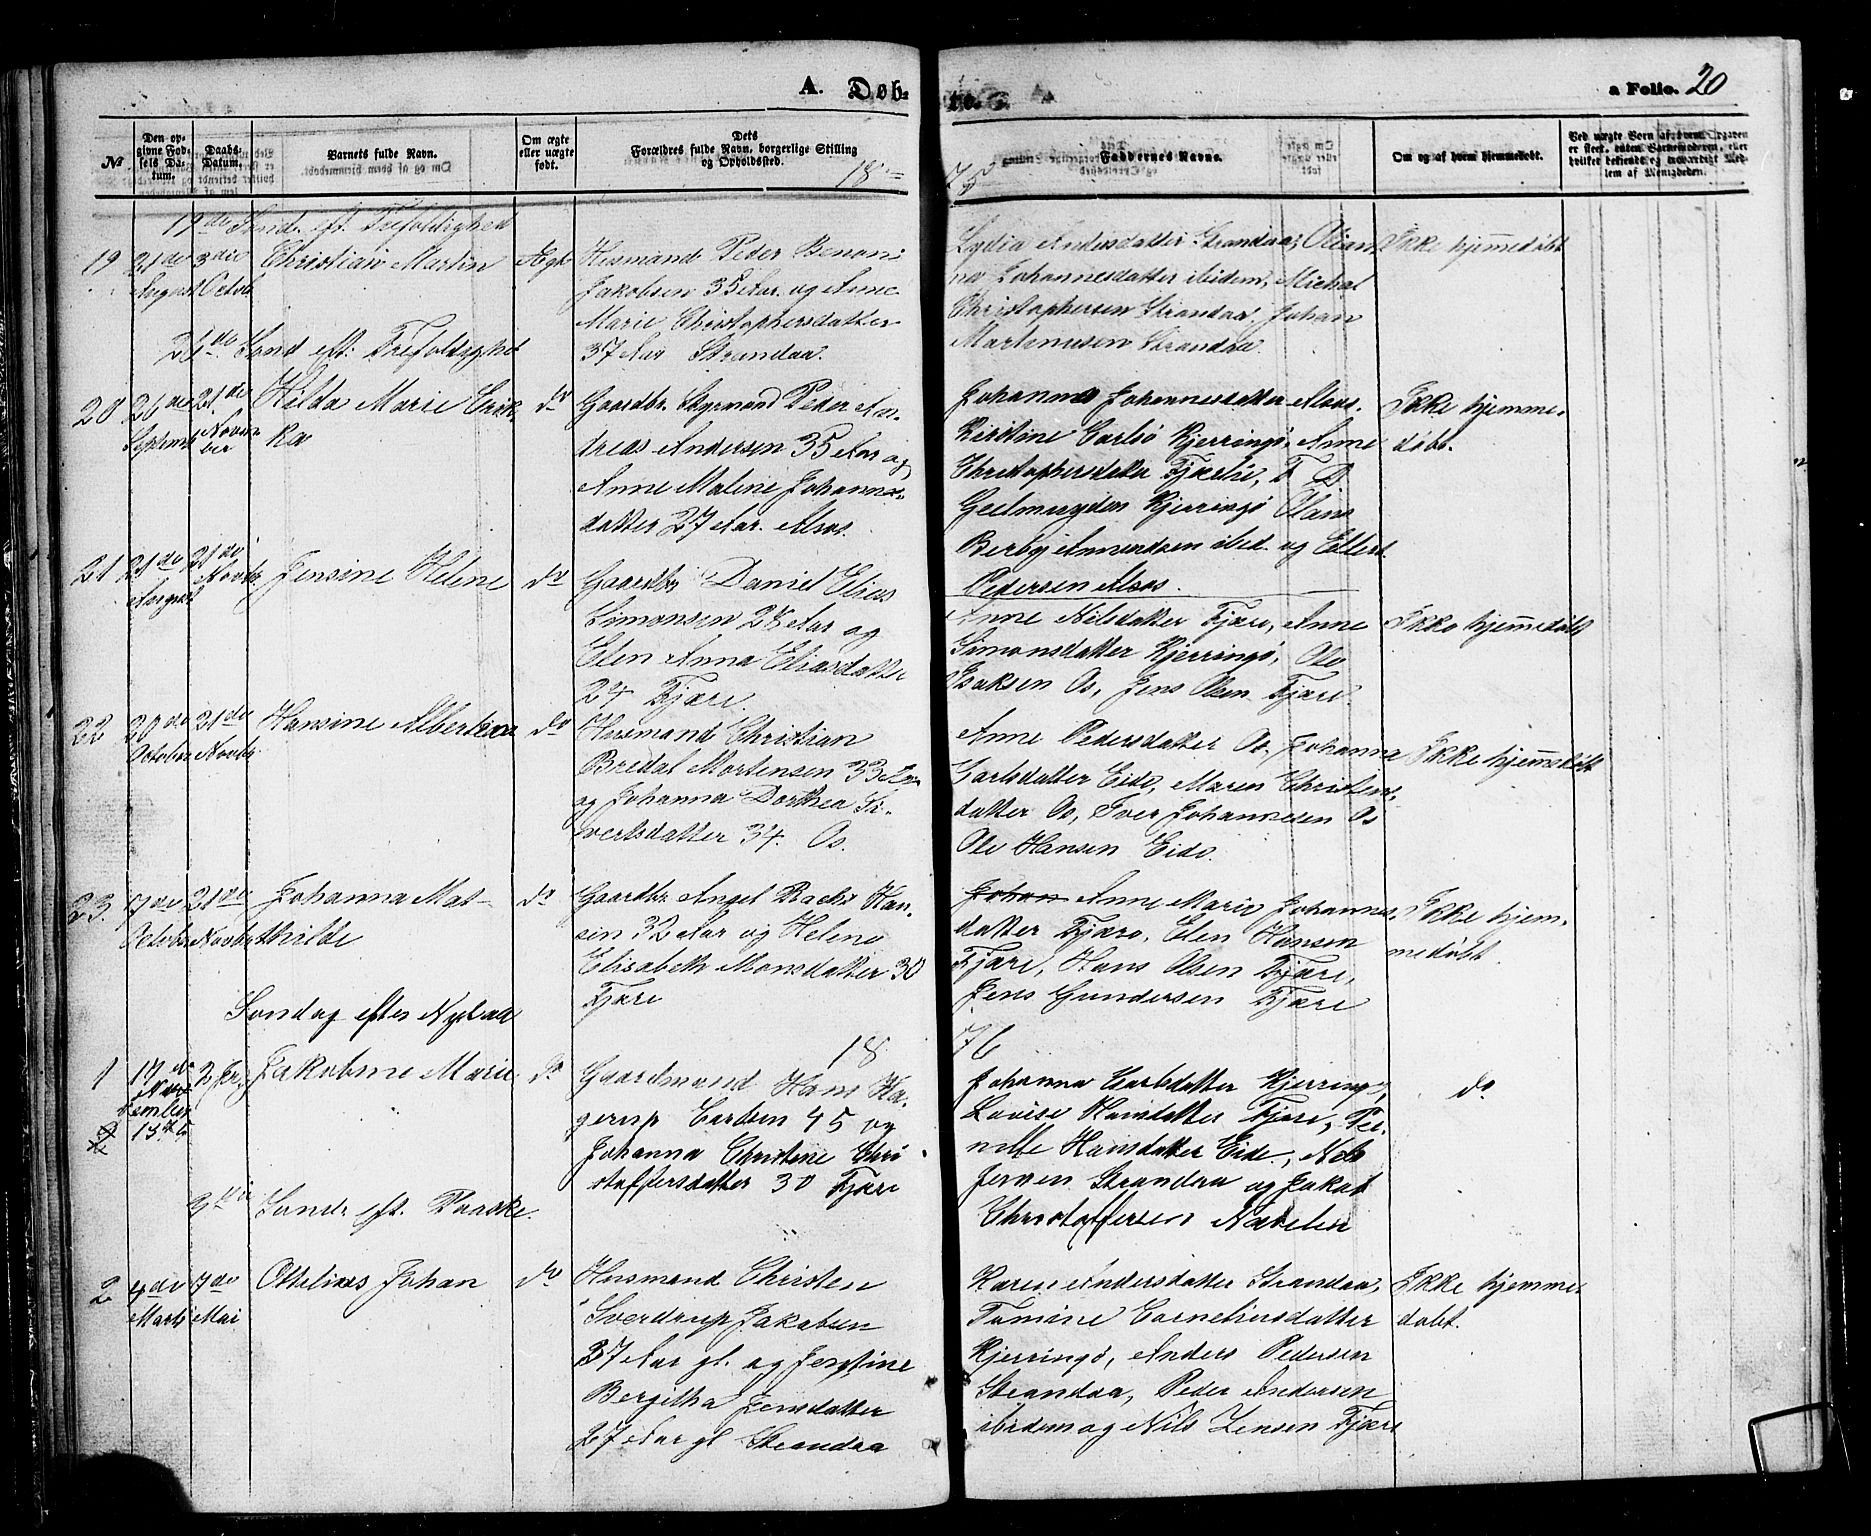 A. Døb-
te.
a Folio. 20
No
Den op-
givne Fød-
sels Da-
tum.
Daabs-
Datum.
Barnets fulde Navn.
Om ægte
eller uægte
født.
Dets
Forældres fulde Navn, borgerlige Stilling
og Opholdssted.
Faddernes Navne.
Om og af hvem hjemmedøbt.
18
75
19de Sønd. eft. Trefoldighed
19
21de
August
3die
Octob
Christian Martin
Ægte
Husmand Peder Benoni
Jakobsen 35 Aar og Anne
Marie Christophersdatter
37 Aar Strandaa.
Lydia Andersdatter Strandaa, Olian
na Johannesdatter ibidem, Michal
Christophersen Strandaa, Johan
Martinusen Strandaa.
Ikke hjemmedøbt
26de Sønd eft. Trefoldighd
20
26de
Septemb
21de
Novem
ber
Hilda Marie Erik
ka
do
Gaardbr. Styrmand Peder An-
dreas Andersen 35 Aar og
Anne Maline Johannes-
datter 27 Aar. Alsos.
Johanna Johannesdatter Alsos.
Kirstine Carlsø Kjerringø, Anne
Christophersdatter Fjærlie, F. D.
Geelmuyden Kjerringø Hans
Berbg Amundsen ibid. og Ellert
Pedersen Alsos.
Ikke hjemme-
døbt.
21
21de
August
21de
Novbr.
Jensine Helene
do
Gaardbr Daniel Elias
Simonsen 28 Aar og
Elen Anna Eliasdatter
24 Fjære.
Anne Nilsdatter Fjære, Anne
Simonsdatter Kjerringø, Ole
Isaksen Os, Jens Olsen Fjære.
Ikke hjemmedøbt
22
20de
October
21de
Novbr.
Hansine Albertina
do
Husmand Christian
Bredal Mortensen 33 Aar
og Johanna Dorthea Si-
vertsdatter 34. Os.
Anne Pedersdatter Os, Johanna
Carlsdatter Eide, Maren Christens-
datter Os, Iver Johannesen Os
Ole Hansen Eide.
Ikke hjemmedøbt
23.
7de
Octobr
21de
Novbr
Johanna Mat-
thilde
do
Gaardbr. Angel Bachs Han-
sen 32 Aar og Helene
Elisabeth Monsdatter 30
Fjære
Johan Anne Marie Johannes-
datter Fjære, Elen Hansen
Fjære, Hans Olsen Fjære,
Jens Gundersen Fjære
Ikke hjem-
medøbt.
Søndag efter Nytaar
18
76
1
17de
Nov
ember
1875
2 Jan
Jakobine Marie
do
Gaardmand Hans Ha-
gerup Carlsen 45 og
Johanna Christine Chri
stoffersdatter 30 Fjære
Johanna Carlsdatter Kjerringø,
Lovise Hansdatter Fjære, Per-
nille Hansdatter Eide, Nils
Jensen Strandaa og Jakob
Christoffersen Navelen
do
2
3die Sønd. eft. Paaske.
2
4de
Marts
7de
Mai
Ottelius Johan
do
Husmand Christen
Sverdrup Jakobsen
37 Aar gl. og Jensine
Bergitha Jensdatter
27 Aar gl Strandaa
Karen Andersdatter Strandaa,
Tomine Corneliusdatter
Kjerringø, Anders Pedersen
Strandaa, Peder Andersen
ibidem og Nils Jensen Fjære
Ikke hjemme-
døbt.